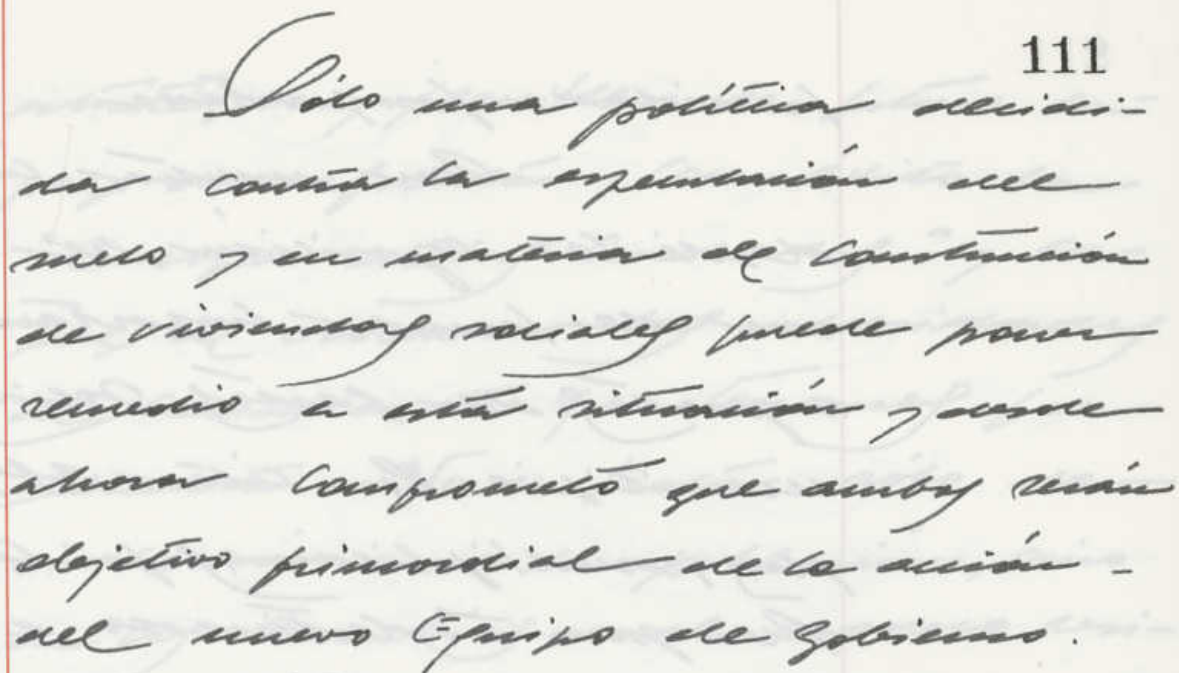 111
Sólo una política decidi-
da contra la especulación del
suelo y en materia de Construcción
de viviendas sociales puede poner
remedio a esta situación y desde
ahora Comprometo que ambos serán
objetivo primordial de la acción -
del nuevo Equipo de Gobierno.